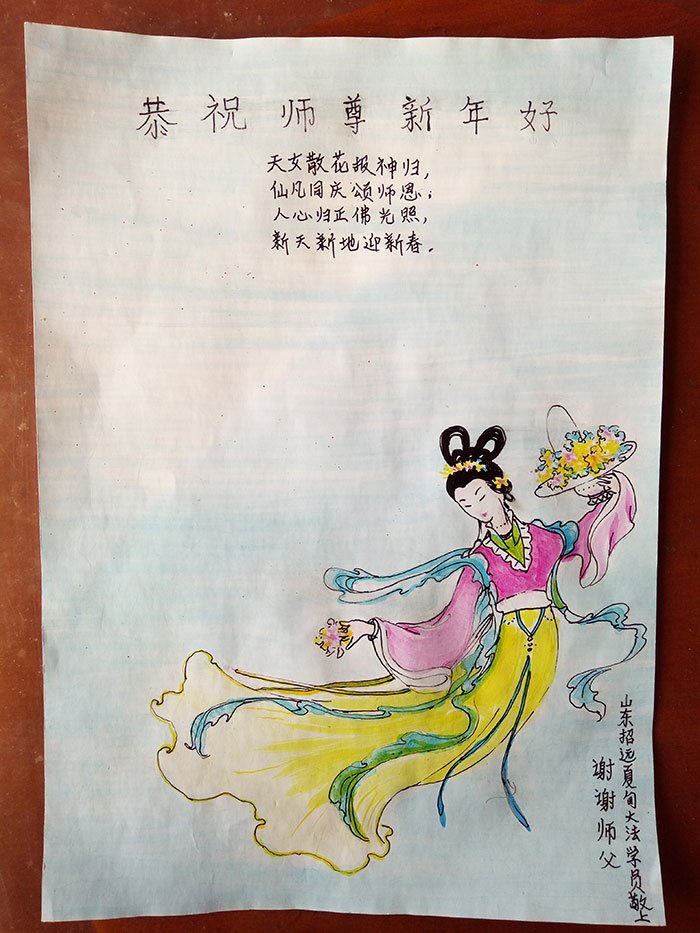 恭祝师尊新年好
天女散花报神归,
仙凡同庆颂师恩;
人心归正佛光照,
新天新地迎新春.
山东招远夏甸大法学员敬上
谢谢师父